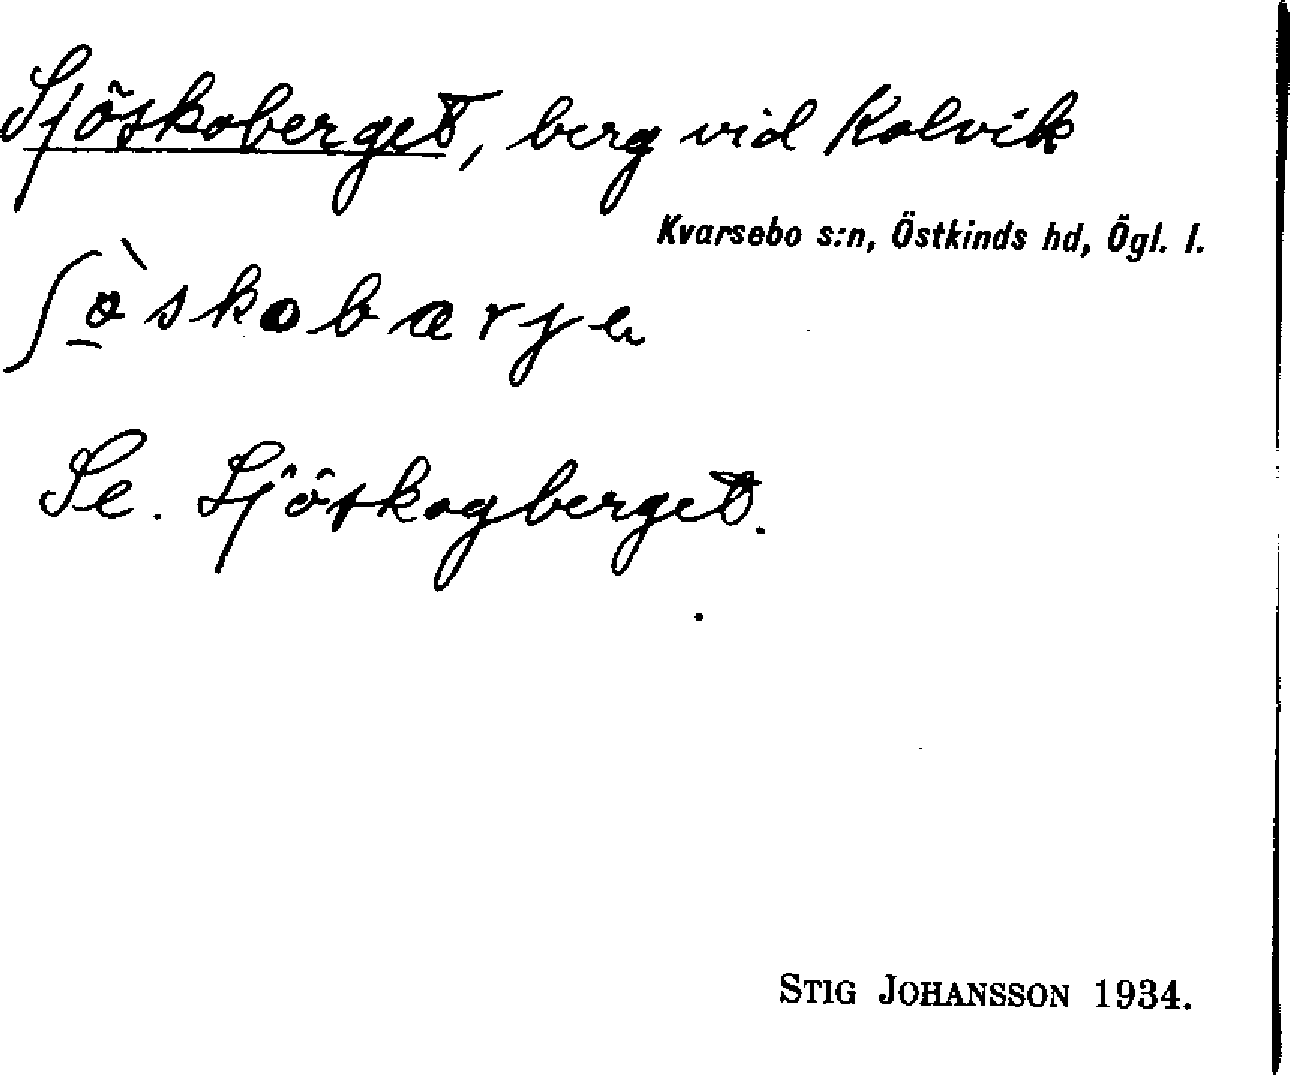 Sjöskoberget, berg vid Kolvik
Kvarsebo s:n, Östkinds hd, Ögl. l.
Se. Sjöskogberget.
STIG JOHANSSON 1934.